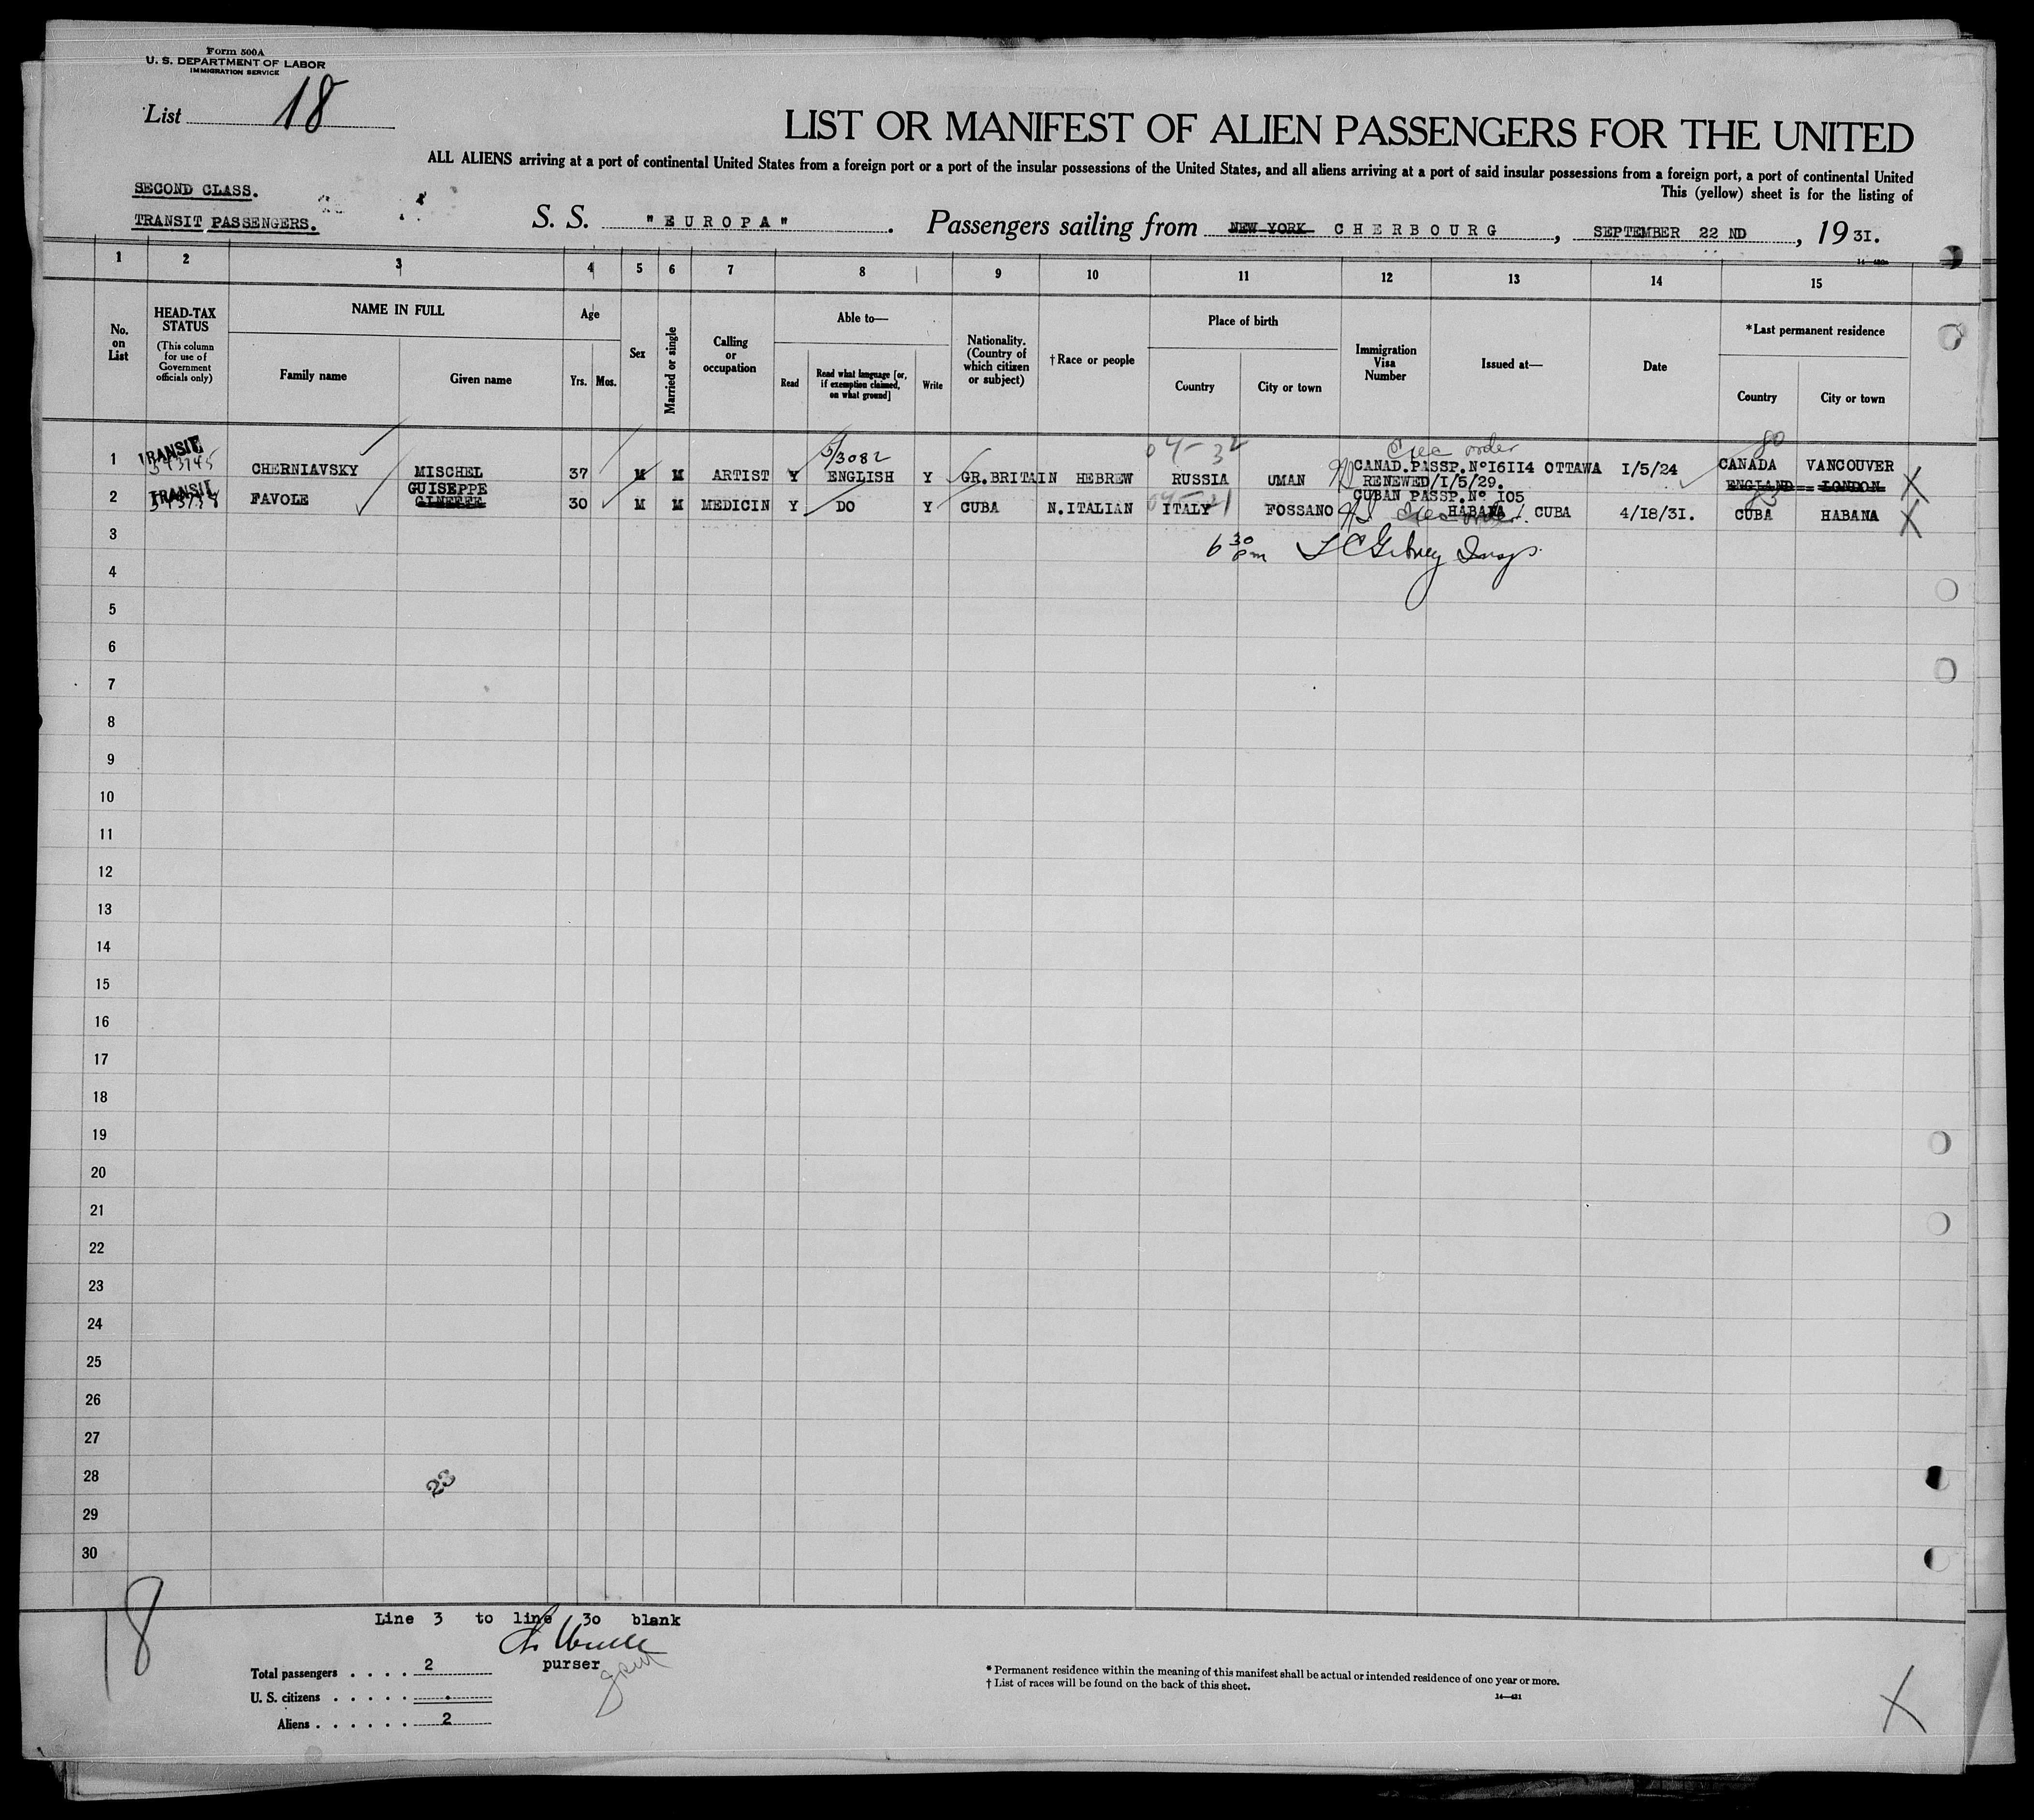 Form 500A
U. S. DEPARTMENT OF LABOR
IMMIGRATION SERVICE
List 18
LIST OR MANIFEST OF ALIEN PASSENGERS FOR THE UNITED
ALL ALIENS arriving at a port of continental United States from a foreign port or a port of the insular possessions of the United States, and all aliens arriving at a port of said insular possessions from a foreign port, a port of continental United
This (yellow) sheet is for the listing of
SECOND CLASS.
TRANSIT PASSENGERS.
S. S. "EUROPA". Passengers sailing from NEW YORK CHERBOURG, SEPTEMBER 22 ND, 19 31.
1 2 3 4 5 6 7 8 9 10 11 12 13 14 15
No. on List
HEAD-TAX STATUS
(This column for use of Government officials only)
NAME IN FULL
Family name
Given name
Age
Yrs.
Mos.
Sex
Married or single
Calling or occupation
Able to—
Read
Read what language [or, if exemption claimed, on what ground]
Write
Nationality. (Country of which citizen or subject)
†Race or people
Place of birth
Country
City or town
Immigration Visa Number
Issued at—
Date
*Last permanent residence
Country
City or town
04-32
80
1 TRANSIT CHERNIAVSKY MISCHEL 37 M M ARTIST Y ENGLISH Y GR.BRITAIN HEBREW RUSSIA UMAN CANAD.PASSP.Nº16114 OTTAWA 1/5/24 CANADA VANCOUVER
RENEWED/1/5/29. ENGLAND LONDON
GUISEPPE
CUBAN PASSP.Nº 105
2 TRANSIT FAVOLE 30 M M MEDICIN Y DO Y CUBA N.ITALIAN ITALY FOSSANO HABANA / CUBA 4/18/31. CUBA HABANA
3
6 30 pm
4
5
6
7
8
9
10
11
12
13
14
15
16
17
18
19
20
21
22
23
24
25
26
27
28
23
29
30
18
Line 3 to line 30 blank
purser
Total passengers . . . . 2
U. S. citizens . . . . .
Aliens . . . . . . 2
* Permanent residence within the meaning of this manifest shall be actual or intended residence of one year or more.
† List of races will be found on the back of this sheet.
14—431
X